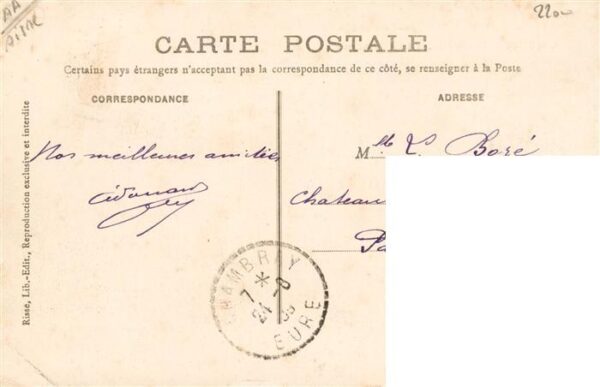 AA
Aisne
2200
CARTE POSTALE
Certains pays étrangers n'acceptant pas la correspondance de ce côté, se renseigner à la Poste
CORRESPONDANCE
ADRESSE
Nos meilleures amitiés
Edouard
Mlle L. Boré
Chateau
Pa
CHAMBRAY
7 * 
EURE
Risse, Lib.-Edit., Reproduction exclusive et interdite